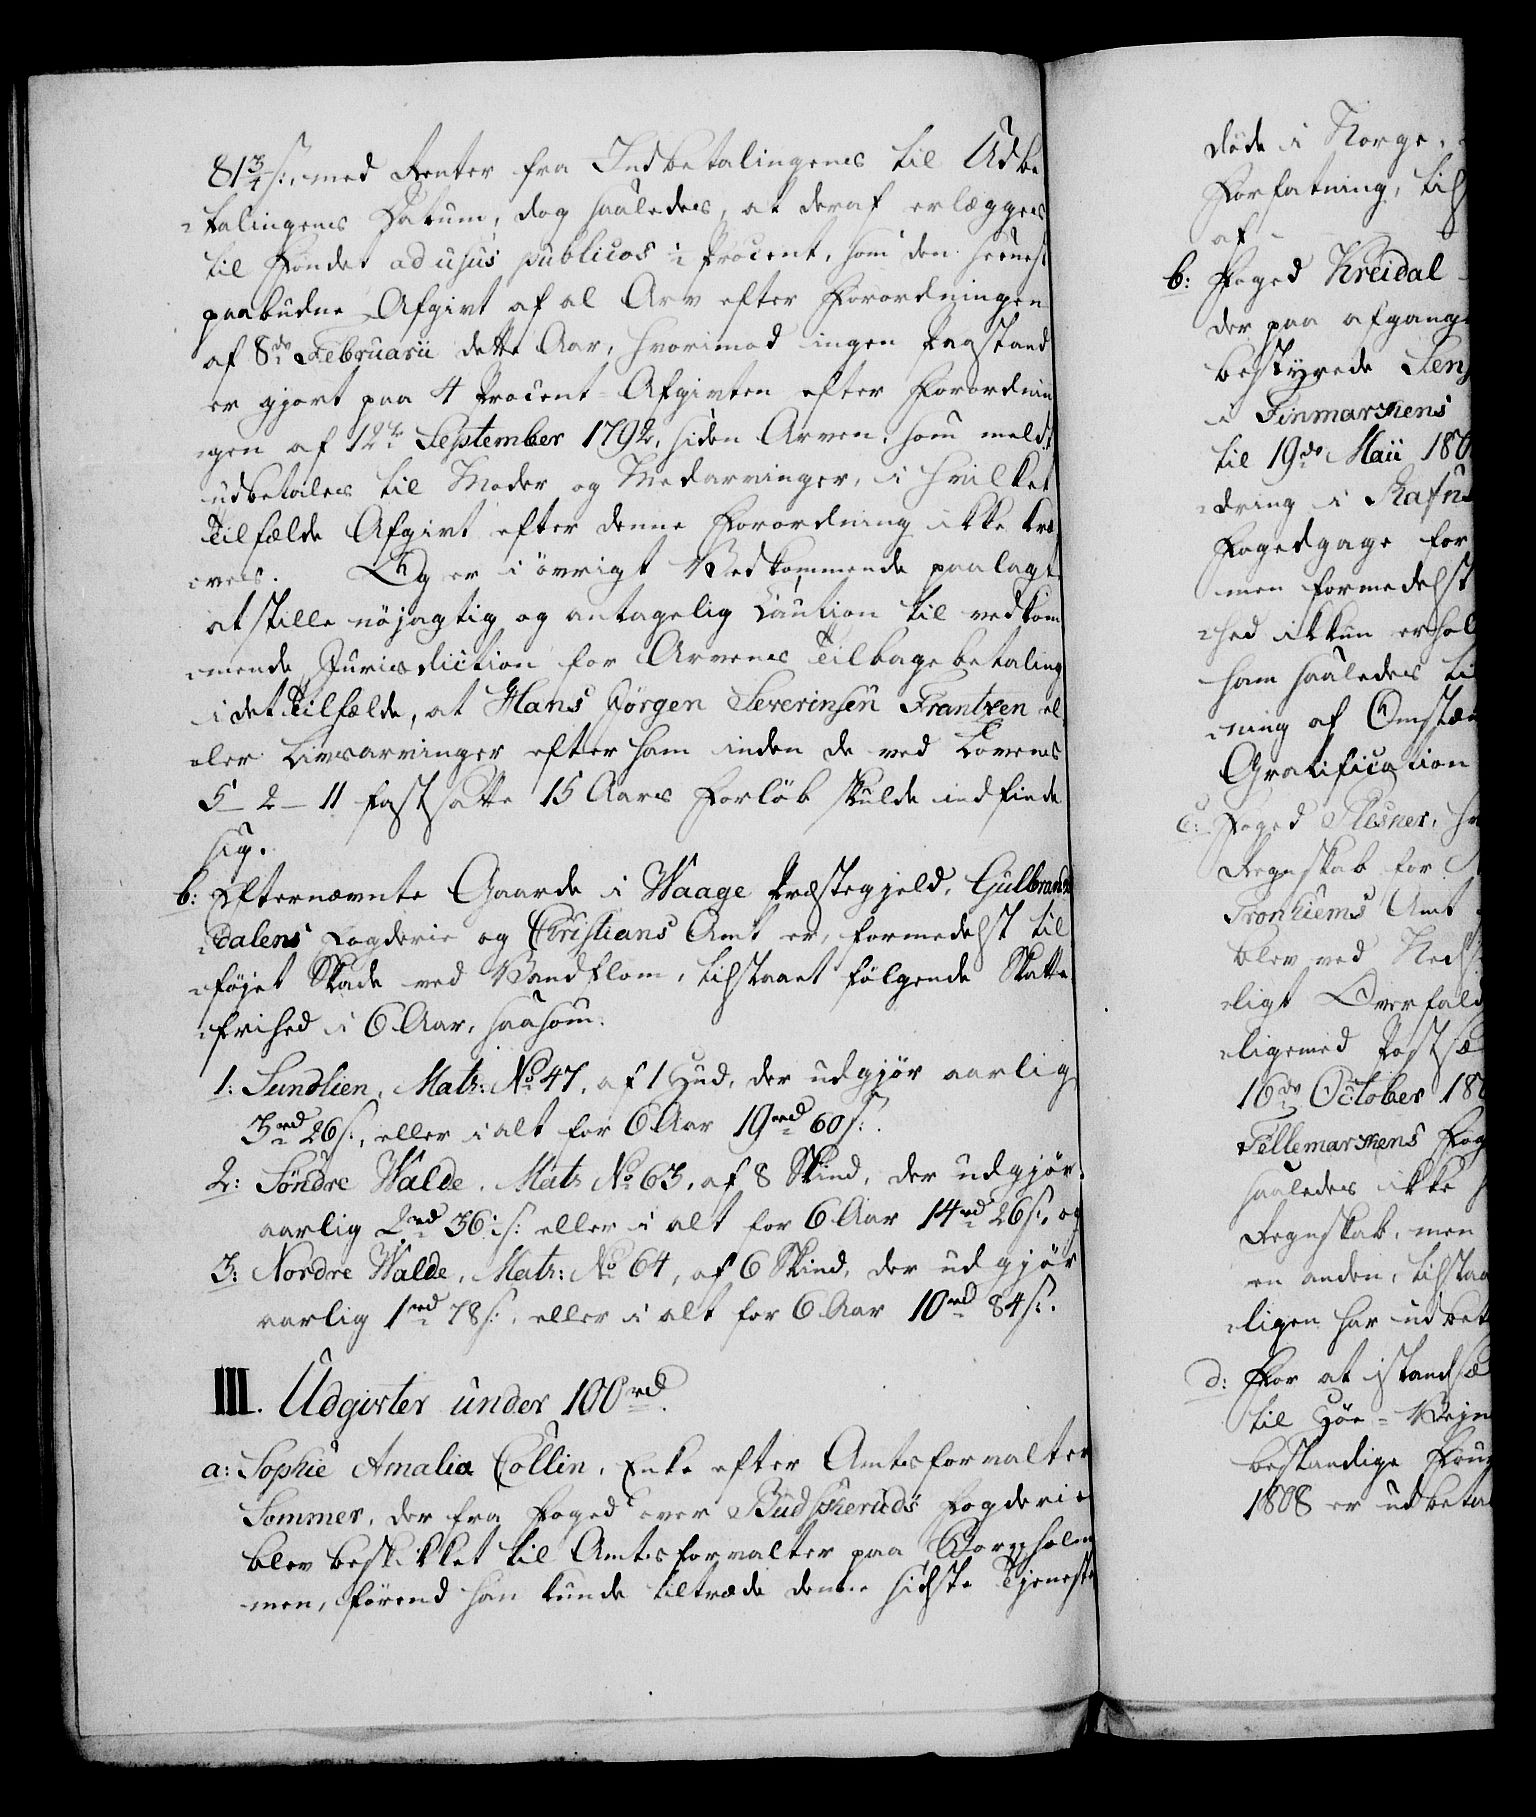 81¾ s:, med Renter fra Indbetalingens til Udbe
talingens Datum, dog saaledes, at deraf erlægges
til Fondet ad usus publicos ½ Procent, som den seenest
paabudne Afgivt af al Arv efter Forordningen
af 8de Februarii dette Aar, hvorimod ingen Paastand
er gjort paa 4 Procent Afgivten efter Forordnin
gen af 12te September 1792, siden Arven, som meldt
udbetales til Moder og Medarvinger, i hvilket
Tilfælde Afgivt efter denne Forordning ikke kræ
ves. Og er i övrigt Vedkommende paalagt
at stille nöjagtig og antagelig Caution til vedkom
mende Jurisdiction for Arvens Tilbagebetaling
i det Tilfælde, at Hans Jörgen Severinsen Frantzen el
ler Livsarvinger efter ham inden de ved Lovens
5 - 2 - 11 fastsatte 15 Aars Forlöb skulde indfinde
sig.
b: Efternævnte Gaarde i Waage Præstegjeld, Gulbrands
dalens Fogderie og Christians Amt er, formedelst til
föjet Skade ved Vandflom, tilstaaet fölgende Skatte
frihed i 6 Aar, saasom:
1: Sundlien, Matr: No 47, af 1 Hud, der udgjör aarlig
3 rd 26 s:, eller i alt for 6 Aar 19 rd 60 s:.
2: Söndre Walde, Matr No 63, af 8 Skind, der udgjör
aarlig 2 rd 36 s: eller i alt for 6 Aar 14 rd 26 s:, og
3: Nordre Walde, Matr: No 64, af 6 Skind, der udgjör
aarlig 1 rd 78 s:, eller i alt for 6 Aar 10 rd 84 s:.
III. Udgivter under 100 rd.
a: Sophie Amalia Collin, Enke efter Amtsforvalter
Sommer, der fra Foged over Budskeruds Fogderie
blev beskikket til Amtsforvalter paa Bornholm
men, förend han kunde tiltræde denne sidste Tjeneste
döde i Norge,
Forfatning, tils
af
b: Foged Kreidal
der paa afgange
bestyrede Senj
i Finmarkens
til 19de Maii 180
dring i
Fogedgage for
men formedelst
hed ikkun erhol
ham saaledes ti
ning af Omstæn
Gratification
c: Foged Plesner, hv
Regnskab for
Tronhiems Amt
blev ved
ligt Overfald
ligemed Post
16de October 180
Tellemarkens Fog
saaledes ikke
Regnskab, men
en anden, tilstaa
ligen har udbet
d: For at istandsæ
til Höe-Vejn
bestandige
1808 er udbeta